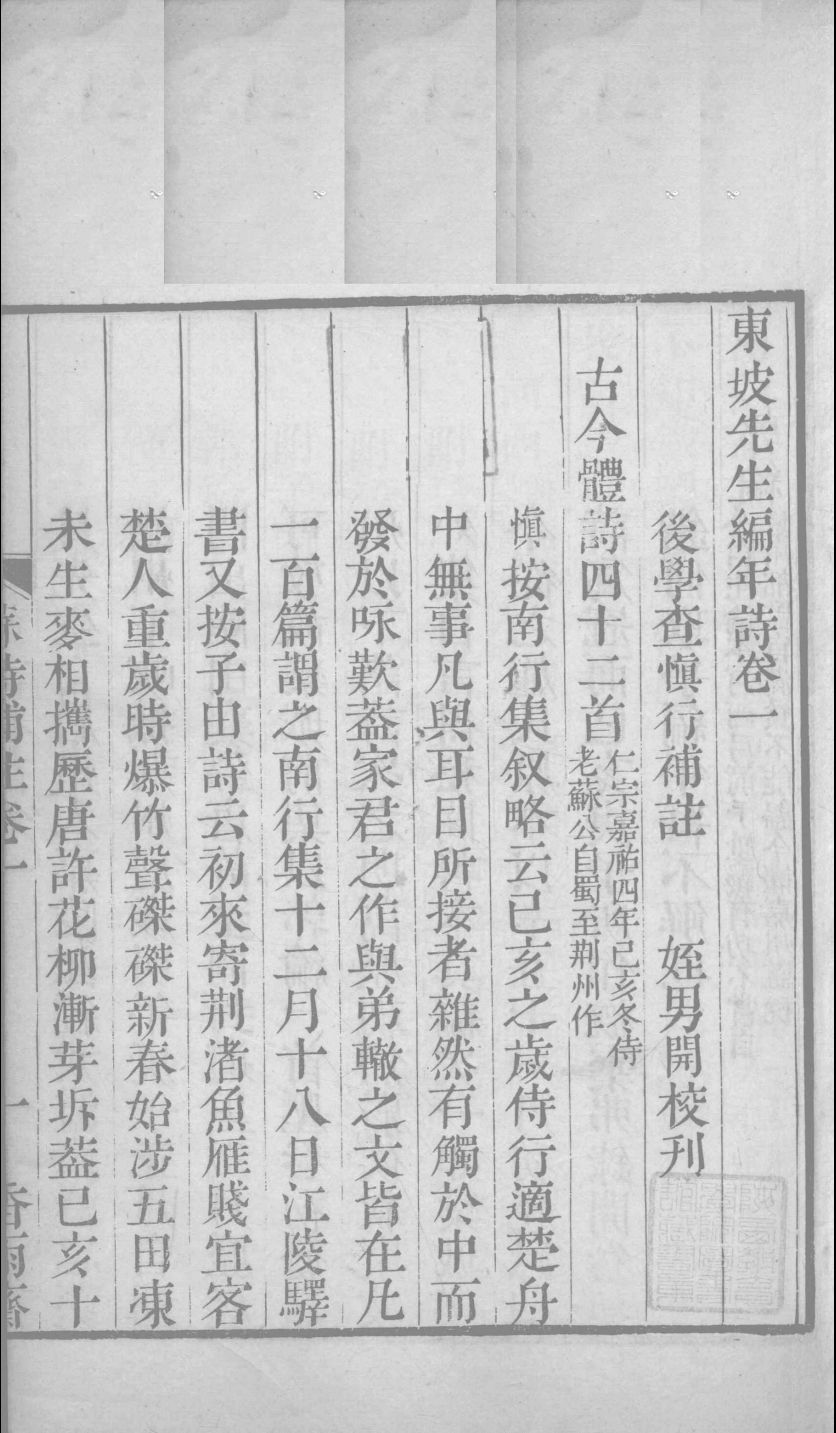 東坡先生編年詩卷一
後學查慎行補註　姪男開校刊
古今體詩四十二首仁宗嘉祐四年己亥冬侍
老蘇公自蜀至荆州作
慎按南行集叙略云己亥之歲侍行適楚舟
中無事凡與耳目所接者雜然有觸於中而
發於咏歎葢家君之作與弟轍之文皆在凡
一百篇謂之南行集十二月十八日江陵驛
書又按子由詩云初來寄荆渚魚雁賤宜客
楚人重歲時爆竹聲磔磔新春始涉五田凍
未生麥相攜歷唐許花柳漸芽坼葢己亥十
蘇詩補註卷一　一　香雨齋